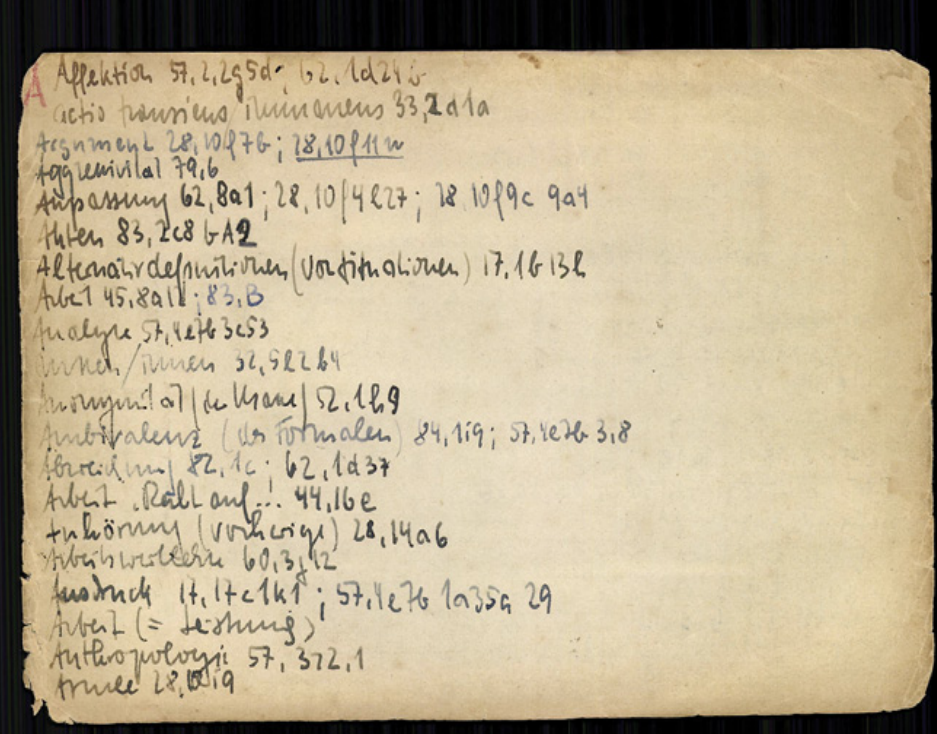 A
Affektion 57,2,2g5d; 62,1d24
actio transiens/immanens 33,2d1a
Argument 28,10f7b; 28,10f11
Aggressivität 79,6
Anpassung 62,8a1; 28,10f4e27; 28,10f9c 9a4
Akten 83,2c8bA2
Alternativdefinitionen (von Situationen) 17,1b13h
Arbeit 45,8a1; 83,B
Analyse 57,4e7b3c53
/innen
Anonymität 52,1h9
Ambivalenz (des Formalen) 84,1i9; 57,4e7b3,8
Abweichung 82,1c; 62,1d37
Arbeit 44,16e
Anhörung (vorherige) 28,14a6
60,3g12
Ausdruck 17,17c1k1; 57,4e7b 1a35a 29
Arbeit (= Leistung)
Anthropologie 57,
Armee